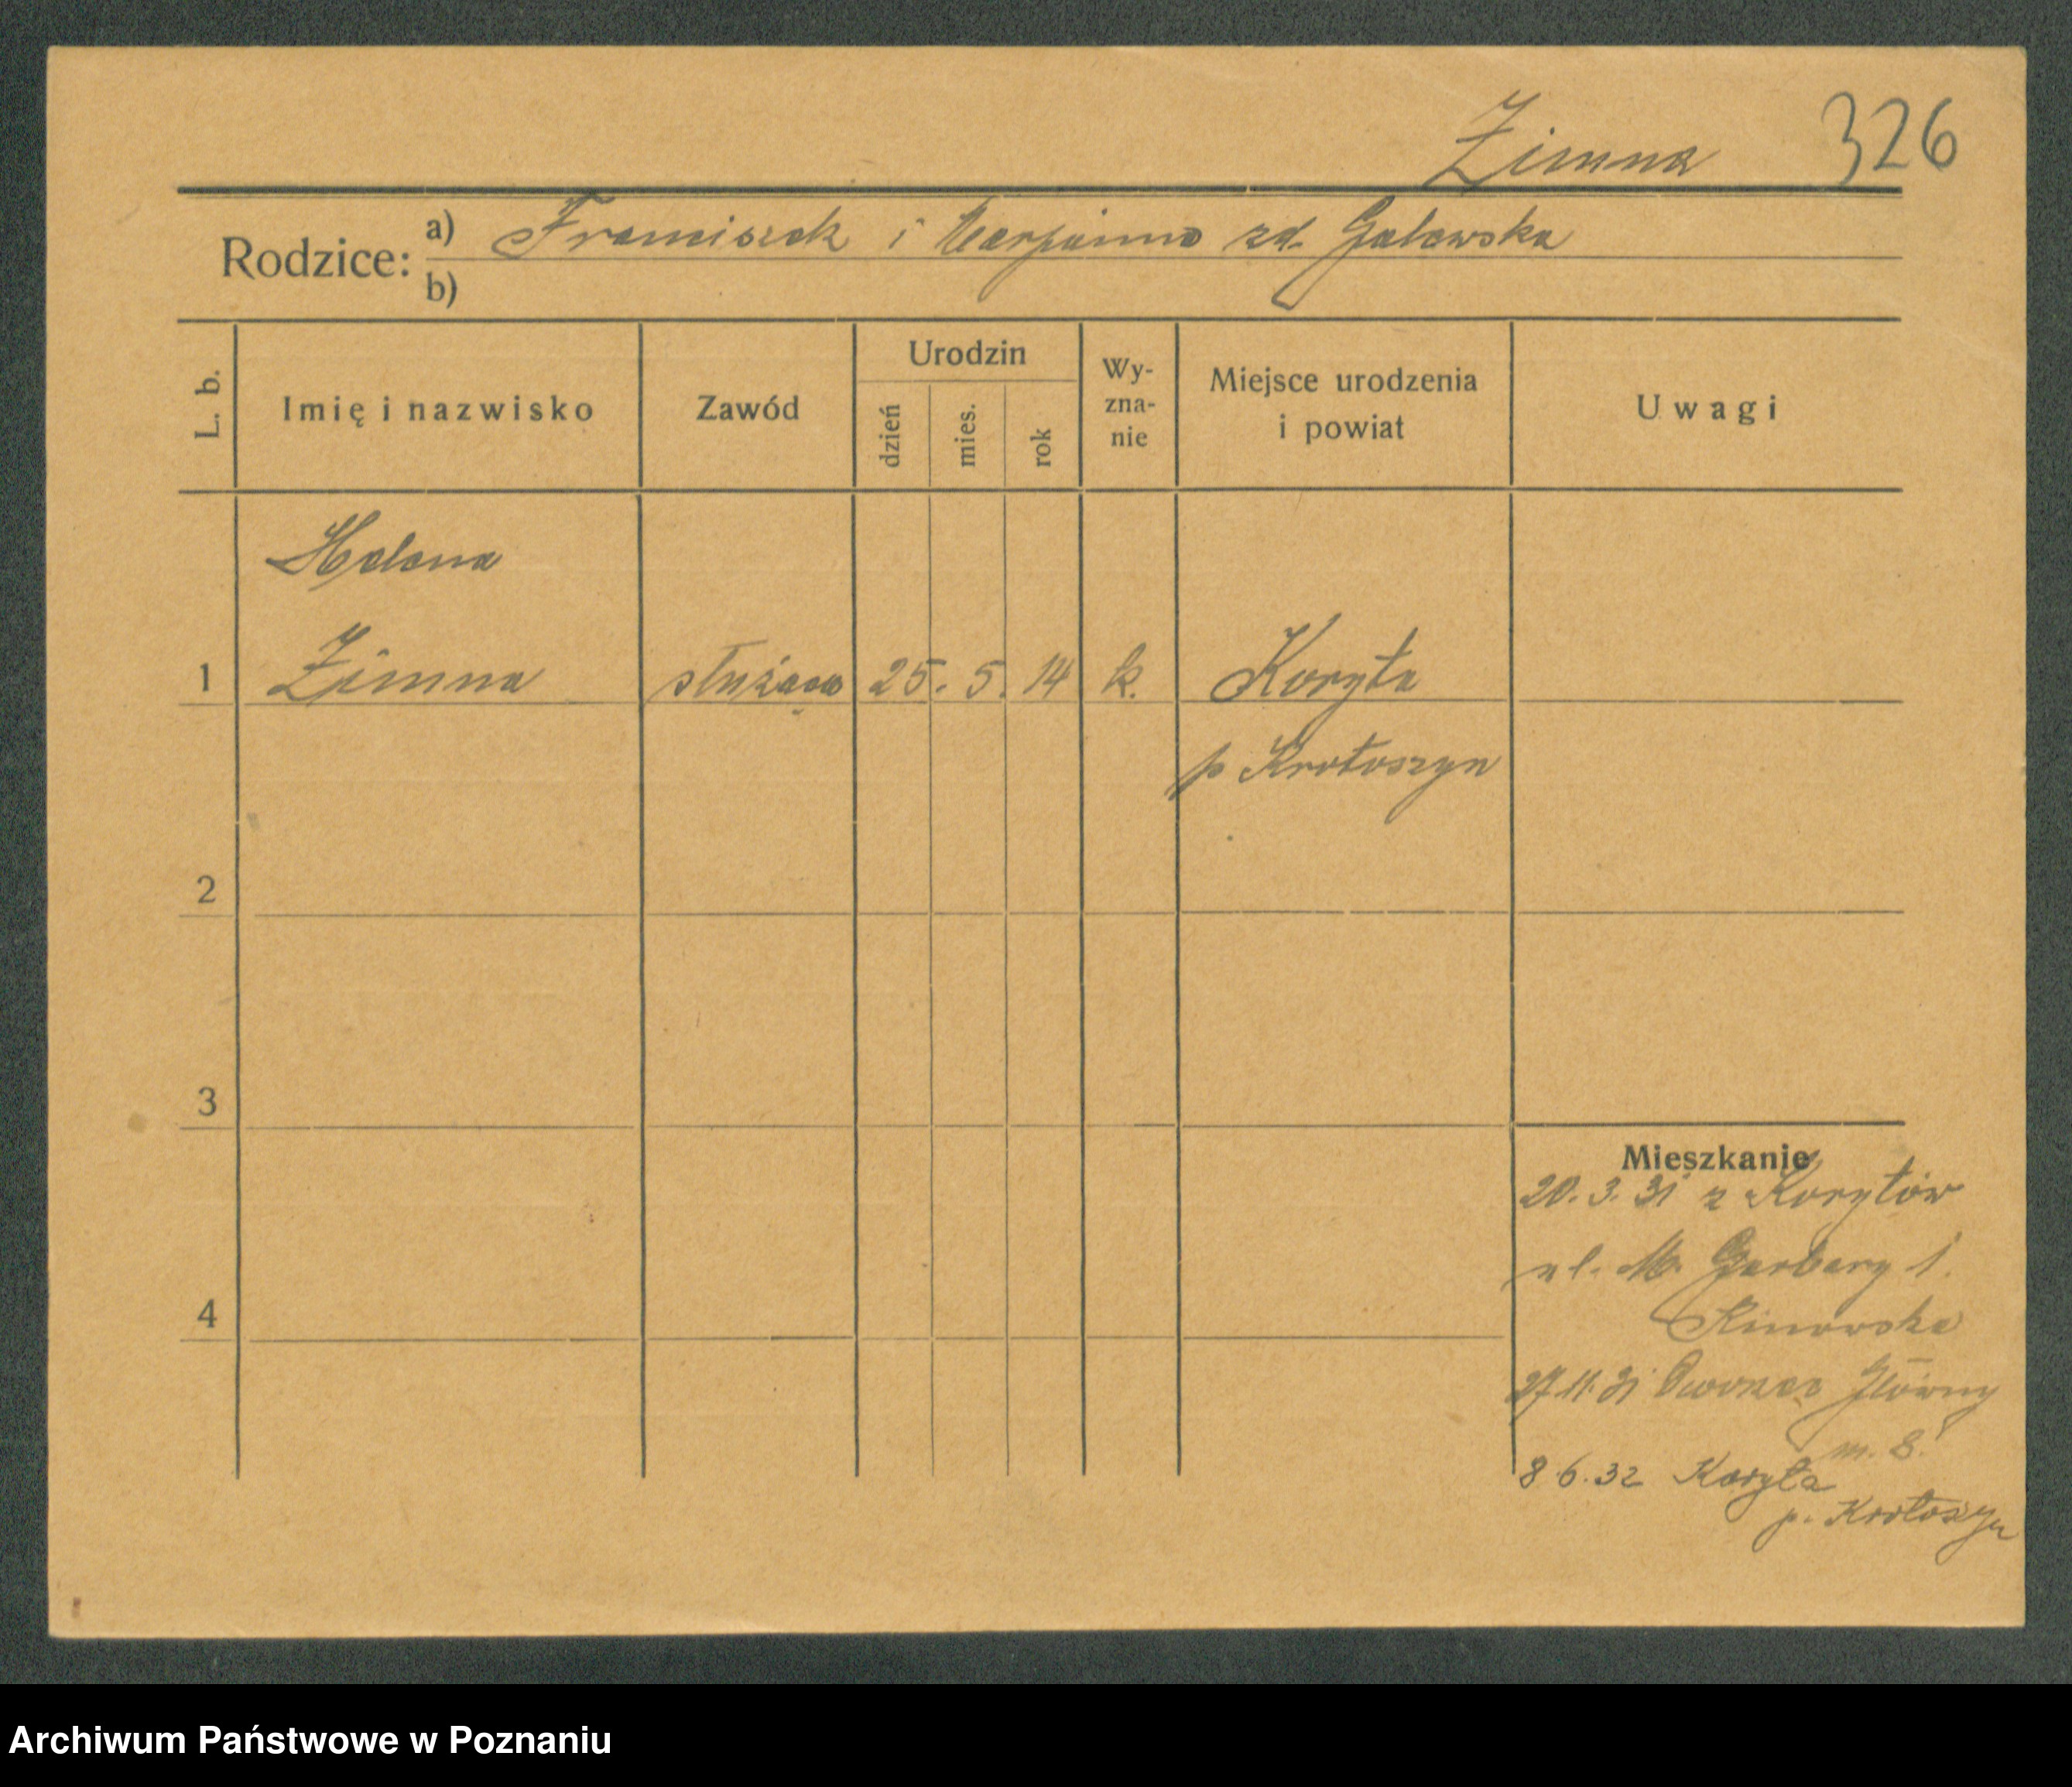 Zimna 326
Rodzice: a) Franciszek i Marjanna zd. Galewska
b)
L. b. Imię i nazwisko Zawód Urodzin dzień mies. rok Wy-zna-nie Miejsce urodzenia i powiat Uwagi
Helena
1 Zimna służąca 25. 5. 14 k. Koryta
p Krotoszyn
2
3
Mieszkanie
20. 3. 31 z Korytów
ul. M. Garbary 1.
4
27.11.31 Dworzec Główny
m. 8.
8.6.32 Koryta
p. Krotoszyn
Archiwum Państwowe w Poznaniu